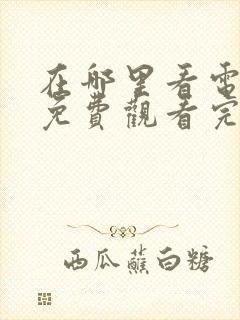 在哪里看電
免費觀看完
西瓜蘸白糖